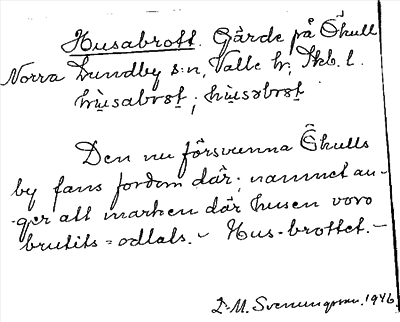 Husabrott. Gärde på Ökull
Norra Lundby s:n, Valle hr, Skb. l.
hùsabrot; hùsəbrot
Den nu försvunna Ökulls
by fans fordom där; namnet an-
-ger att marken där husen voro
brutits = odlats. - Hus-brottet. -
D-M. Svenungsson. 1946.